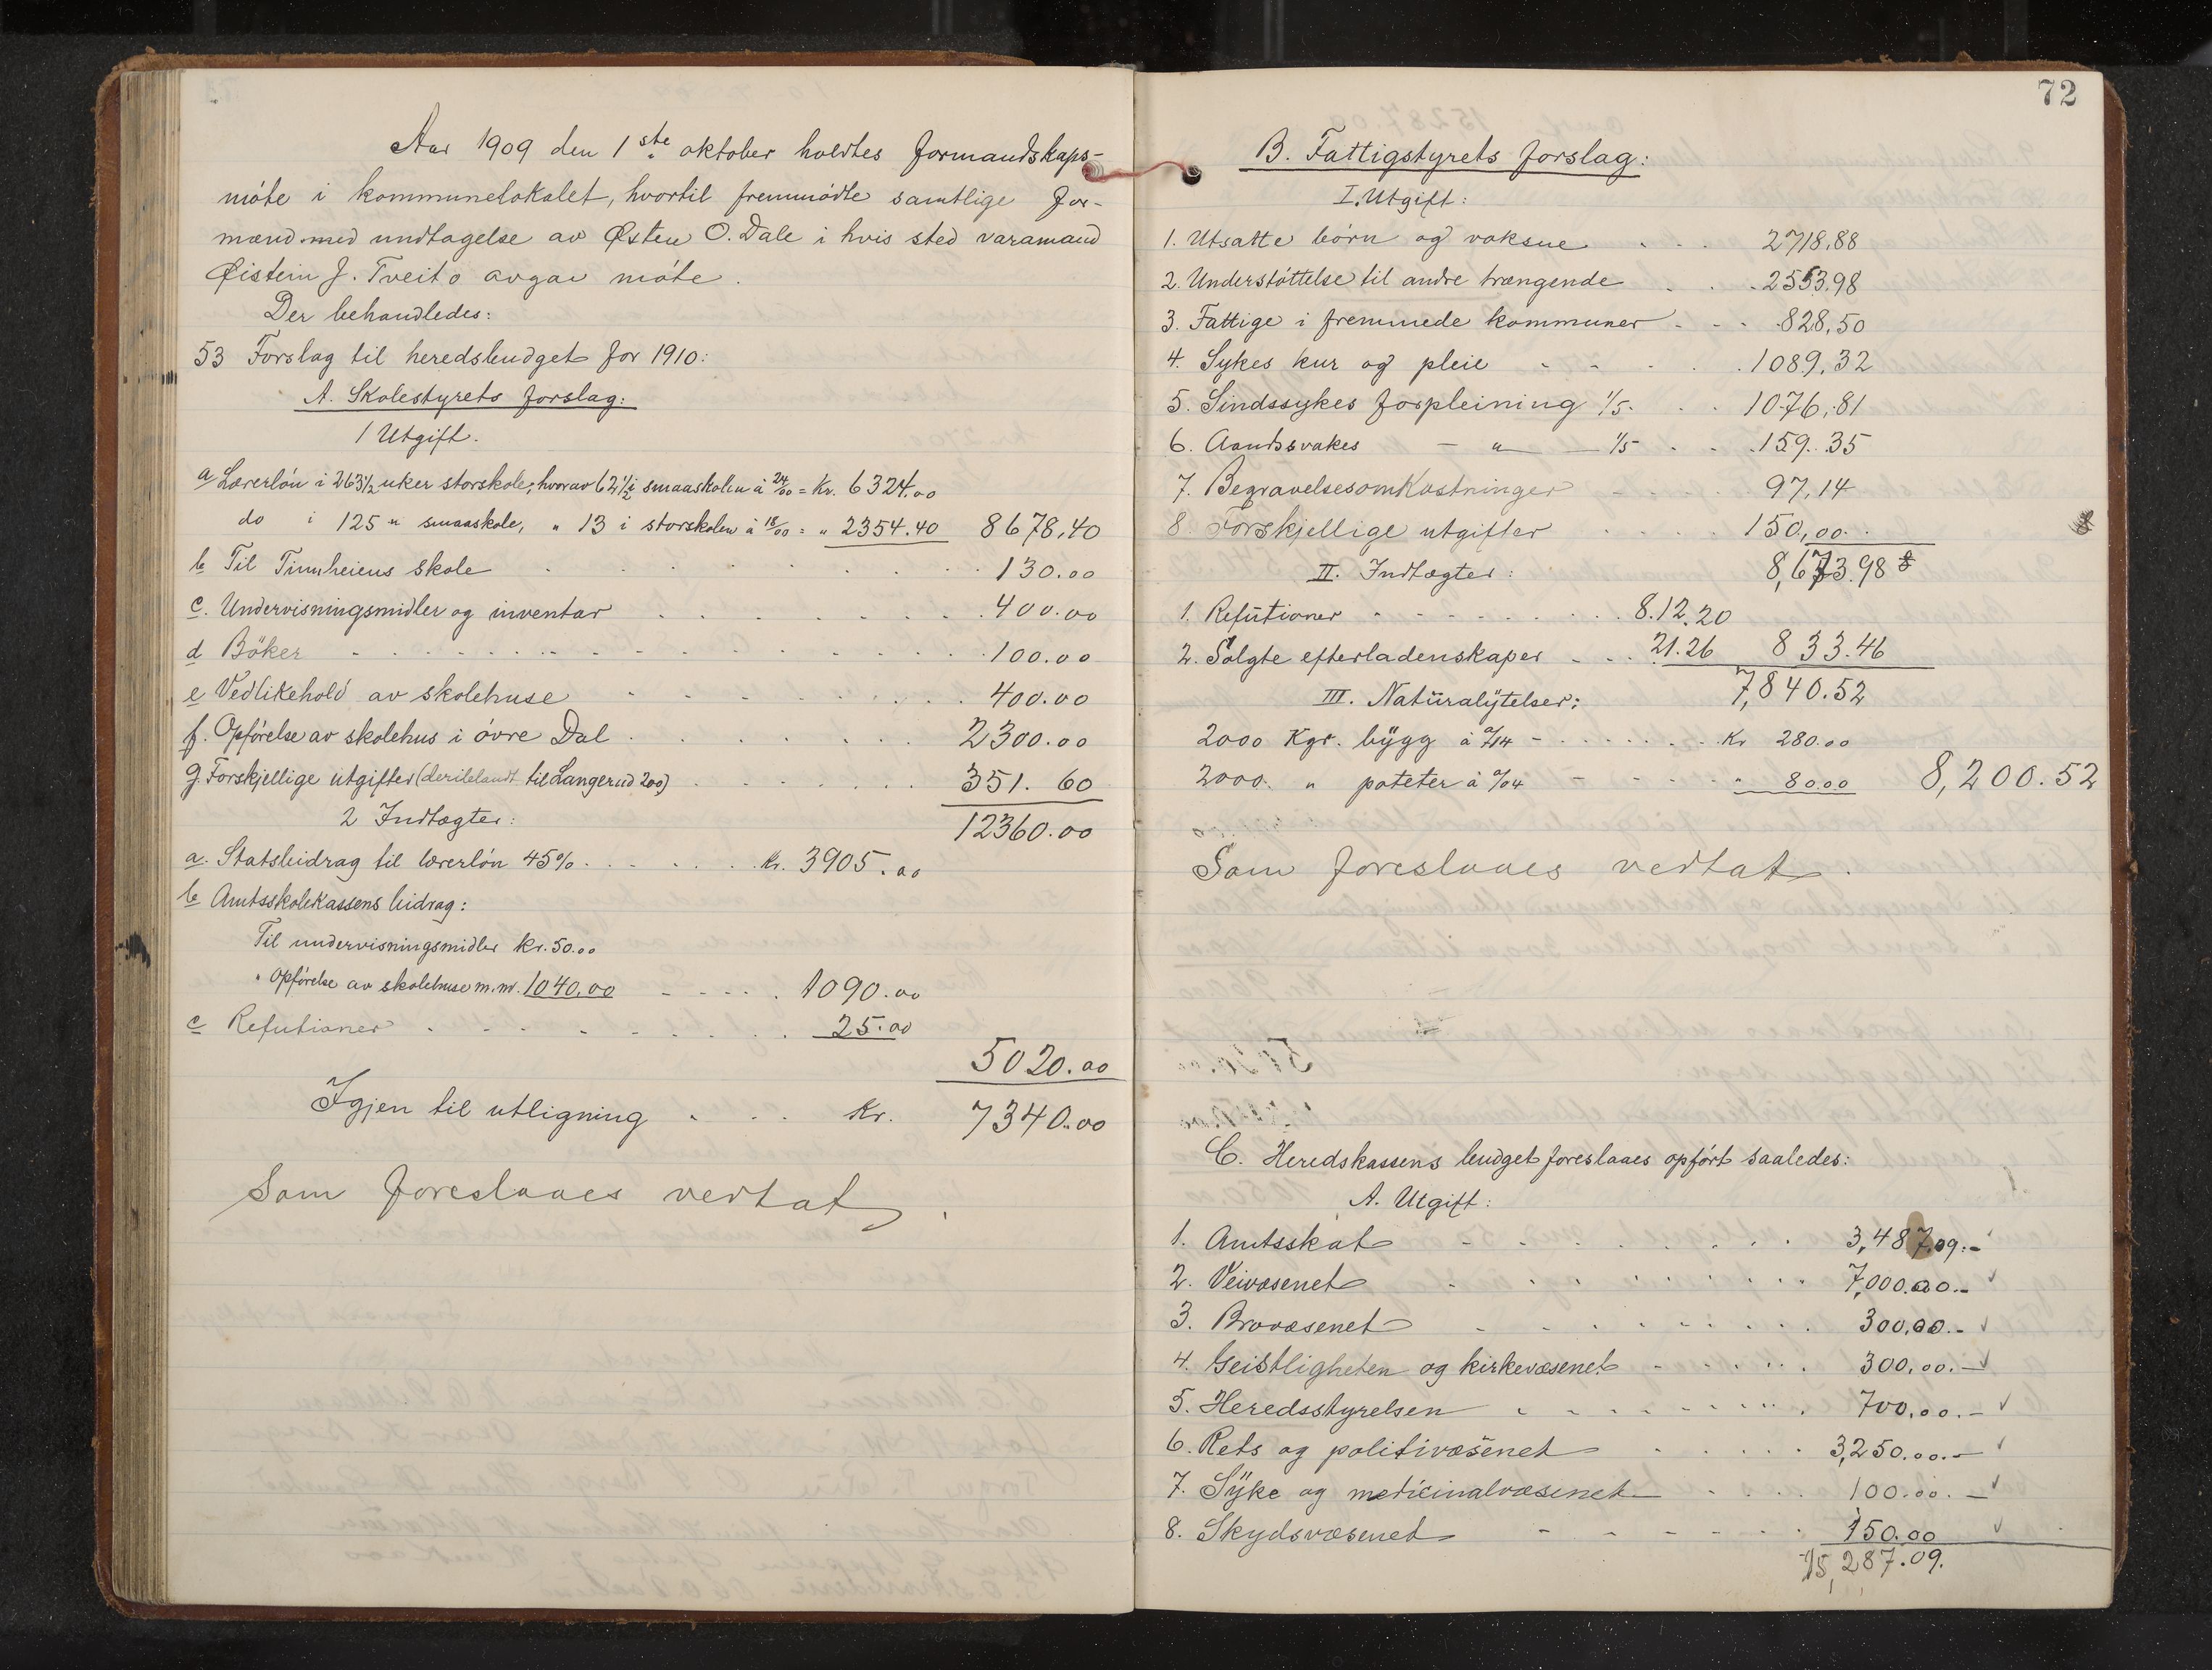 Aar 1909 den 1ste oktober holdtes formandskaps-
møte i kommunelokalet, hvortil fremmødte samtlige for-
mænd med undtagelse av Østen O. Dale i hvis sted varamand
Øistein J. Tveito avgav møte.
Der behandledes:
53 Forslag til heredsbudget for 1910:
A. Skolestyrets forslag:
1 Utgift.
a Lærerløn i 263 1/2 uker storskole, hvorav 62 1/2 i smaaskolen à 24/00 = Kr. 6324.00
do i 125 " smaaskole, " 13 i storskolen à 18/00 = " 2354.40 8678,40
b Til Tinnheiens skole 130.00
c. Undervisningsmidler og inventar 400.00
d Bøker 100.00
e Vedlikehold av skolehuse 400.00
f. Opførelse av skolehus i øvre Dal 2300.00
g. Forskjellige utgifter (deriblandt til Langerud 200) 351.60
2 Indtægter: 12360.00
a. Statsbidrag til lærerløn 45% Kr. 3905.00
b Amtsskolekassens bidrag:
Til undervisningsmidler kr. 50.00
" Opførelse av skolehuse m.m. 1040.00 1090.00
c Refutioner 25.00
5020.00
Igjen til utligning Kr. 7340.00
Som foreslaaes vedtat.
72
B. Fattigstyrets forslag:
I. Utgift:
1. Utsatte børn og voksne 2718,88
2. Understøttelse til andre trængende 2553.98
3. Fattige i fremmede kommuner 828,50
4. Sykes kur og pleie 1089.32
5. Sindssykes forpleining 1/5 1076,81
6. Aandssvakes — " — 1/5 159.35
7. Begravelsesomkostninger 97,14
8. Forskjellige utgifter 150,00
II. Indtægter: 8,673.98
1. Refutioner 812.20
2. Solgte efterladenskaper 21.26 833.46
III. Naturalytelser: 7,840.52
2000 Kgr. bygg à 0/14 Kr 280.00
2000 " poteter à 0/04 " 80.00 8,200.52
Som foreslaaes vedtat.
C. Heredskassens budget foreslaaes opført saaledes:
A. Utgift:
1. Amtsskat 3,487,09.-
2. Veivæsenet 7,000.00.-
3. Brovæsenet 300,00.-
4. Geistligheten og kirkevæsenet 300,00.-
5. Heredsstyrelsen 700,00.-
6. Rets og politivæsenet 3,250.00.-
7. Syke og medicinalvæsenet 100.00.-
8. Skydsvæsenet 150.00
15,287.09.